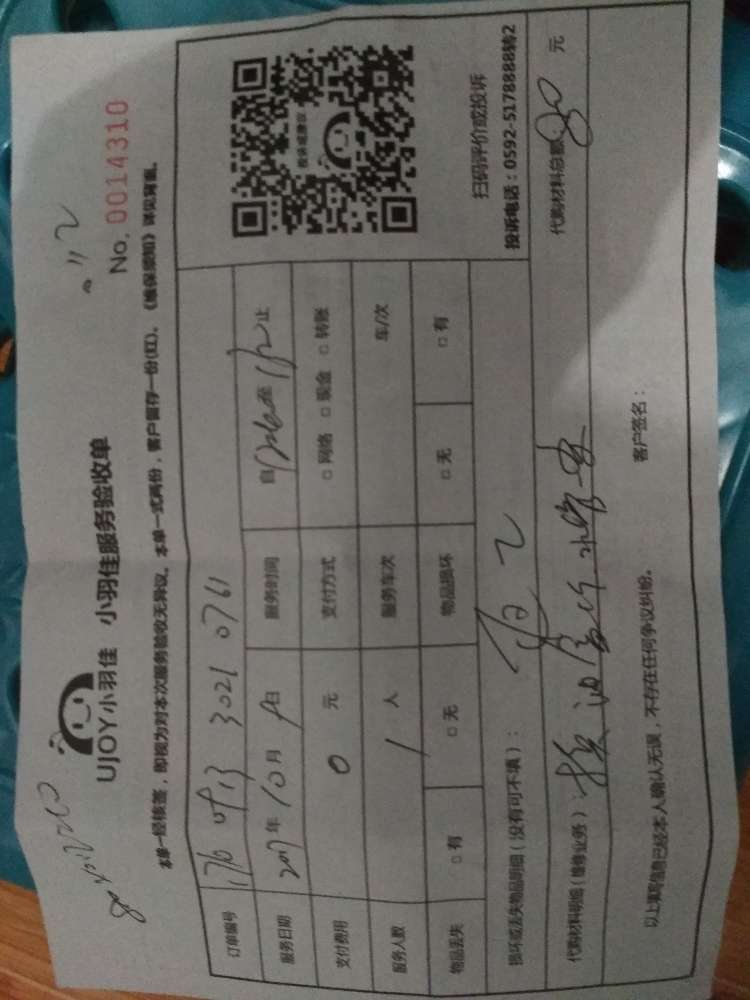 UJOY小羽佳 小羽佳服务验收单
No. 0014310
本单一经核签，即视为对本次服务验收无异议。本单一式两份，客户留存一份(红)。《维保须知》详见背面。
订单编号 176 0913 3021 0761
服务日期 2017年10月9日 服务时间 自 至 止
支付费用 0 元 支付方式 □网络 □现金 □转账
服务人数 1 人 服务车次 车/次
物品丢失 □有 □无 物品损坏 □无 □有
投诉或建议
扫码评价或投诉
投诉电话：0592-5178888转2
损坏或丢失物品明细（没有可不填）：
代购材料明细（维修业务）： 代购材料总额 80 元
以上填写信息已经本人确认无误，不存在任何争议纠纷。 客户签名：